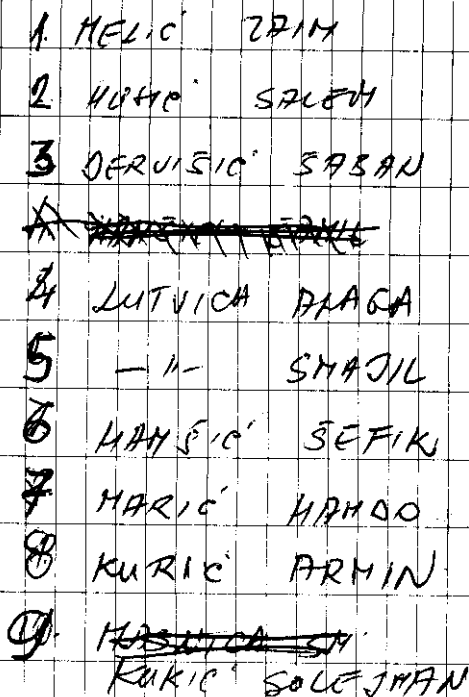 1. MELIĆ ZAIM
2 HUSIĆ SALEM
3 DERVIŠIĆ ŠABAN
4 LUTVICA ALAGA
5 —〃— SMAJIL
6 HAMŠIĆ ŠEFIK
7 MARIĆ HAMDO
8 KURIĆ ARMIN
9.
KUKIĆ SOLEJMAN